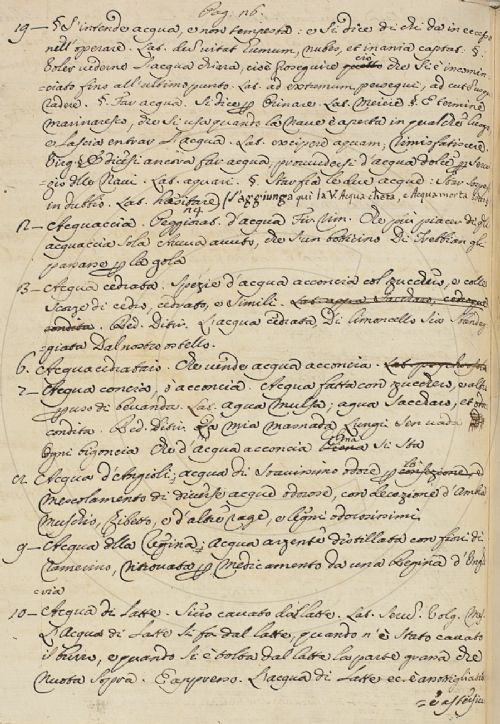 Pag. 116.
19 — § S'intende acqua, e non tempesta: e si dice di chi dà in eccesso
nell'operare. Lat. nubes, et inania captas. §.
Voler vederne l'acqua chiara, cioè proseguire ciò che si è incomin-
ciato fino all'ultimo punto. Lat. ad extremum persequi, ad
§. Far acqua. Si dice per Orinare. Lat. Meiere §. È termine
marinaresco, che si usa quando la Nave è aperta in qualche luogo
e lascia entrar l'acqua. Lat. excipere aquam;
§ Dicesi ancora far acqua, provvedersi d'acqua dolce per serv-
gio delle Navi. Lat. aquari. §. Star fra le due acque. Star sospeso,
in dubbio. Lat. hæsitare. (S'aggiunga qui la V. Acqua cheta, e Acqua morta
12 — Acquaccia. Peggiorat. d'acqua. Che più piacer di
acquaccia sola ch'una avuto, che s'un botticino Di Trebbian gli
passasse per la gola
13 — Acqua cedrata. Spezie d'acqua acconcia col zucchero, e colle
scorze di cedro, cedrato, o simili.
Red. Ditir. L'acqua cedrata Di limoncello Sia sbandeg-
giata Dal nostro ostello.
6. Acquacedrataio. Che vende acqua acconcia.
7 — Acqua concia, o acconcia. Acqua fatta con zucchero, o altro
per uso di bevanda. Lat. aqua mulsa; aqua
condita. Red. Ditir. La mia mannada Lungi sen vada
Ogni bigoncia Che d'acqua acconcia Colma si sta
Acqua d'Angioli; acqua di soavissimo odore per lo
mescolamento di diverse acque odorose, con decozione d'Ambra
Muschio, Zibetto, e d'altre rage, e legni odorosissimi.
9 — Acqua della Regina; Acqua arzente distillata con fiori di
ramerino, ritrovata per medicamento da una Regina d'Unghe-
ria
10 — Acqua di latte. Siero cavato dal latte. Lat. Volg.
L'Acqua di latte si fa dal latte, quando n'è stato cavato
il burro, e quando si è bolita dal latte la parte grassa che
nuota sopra. E appresso. L'acqua di latte ec.